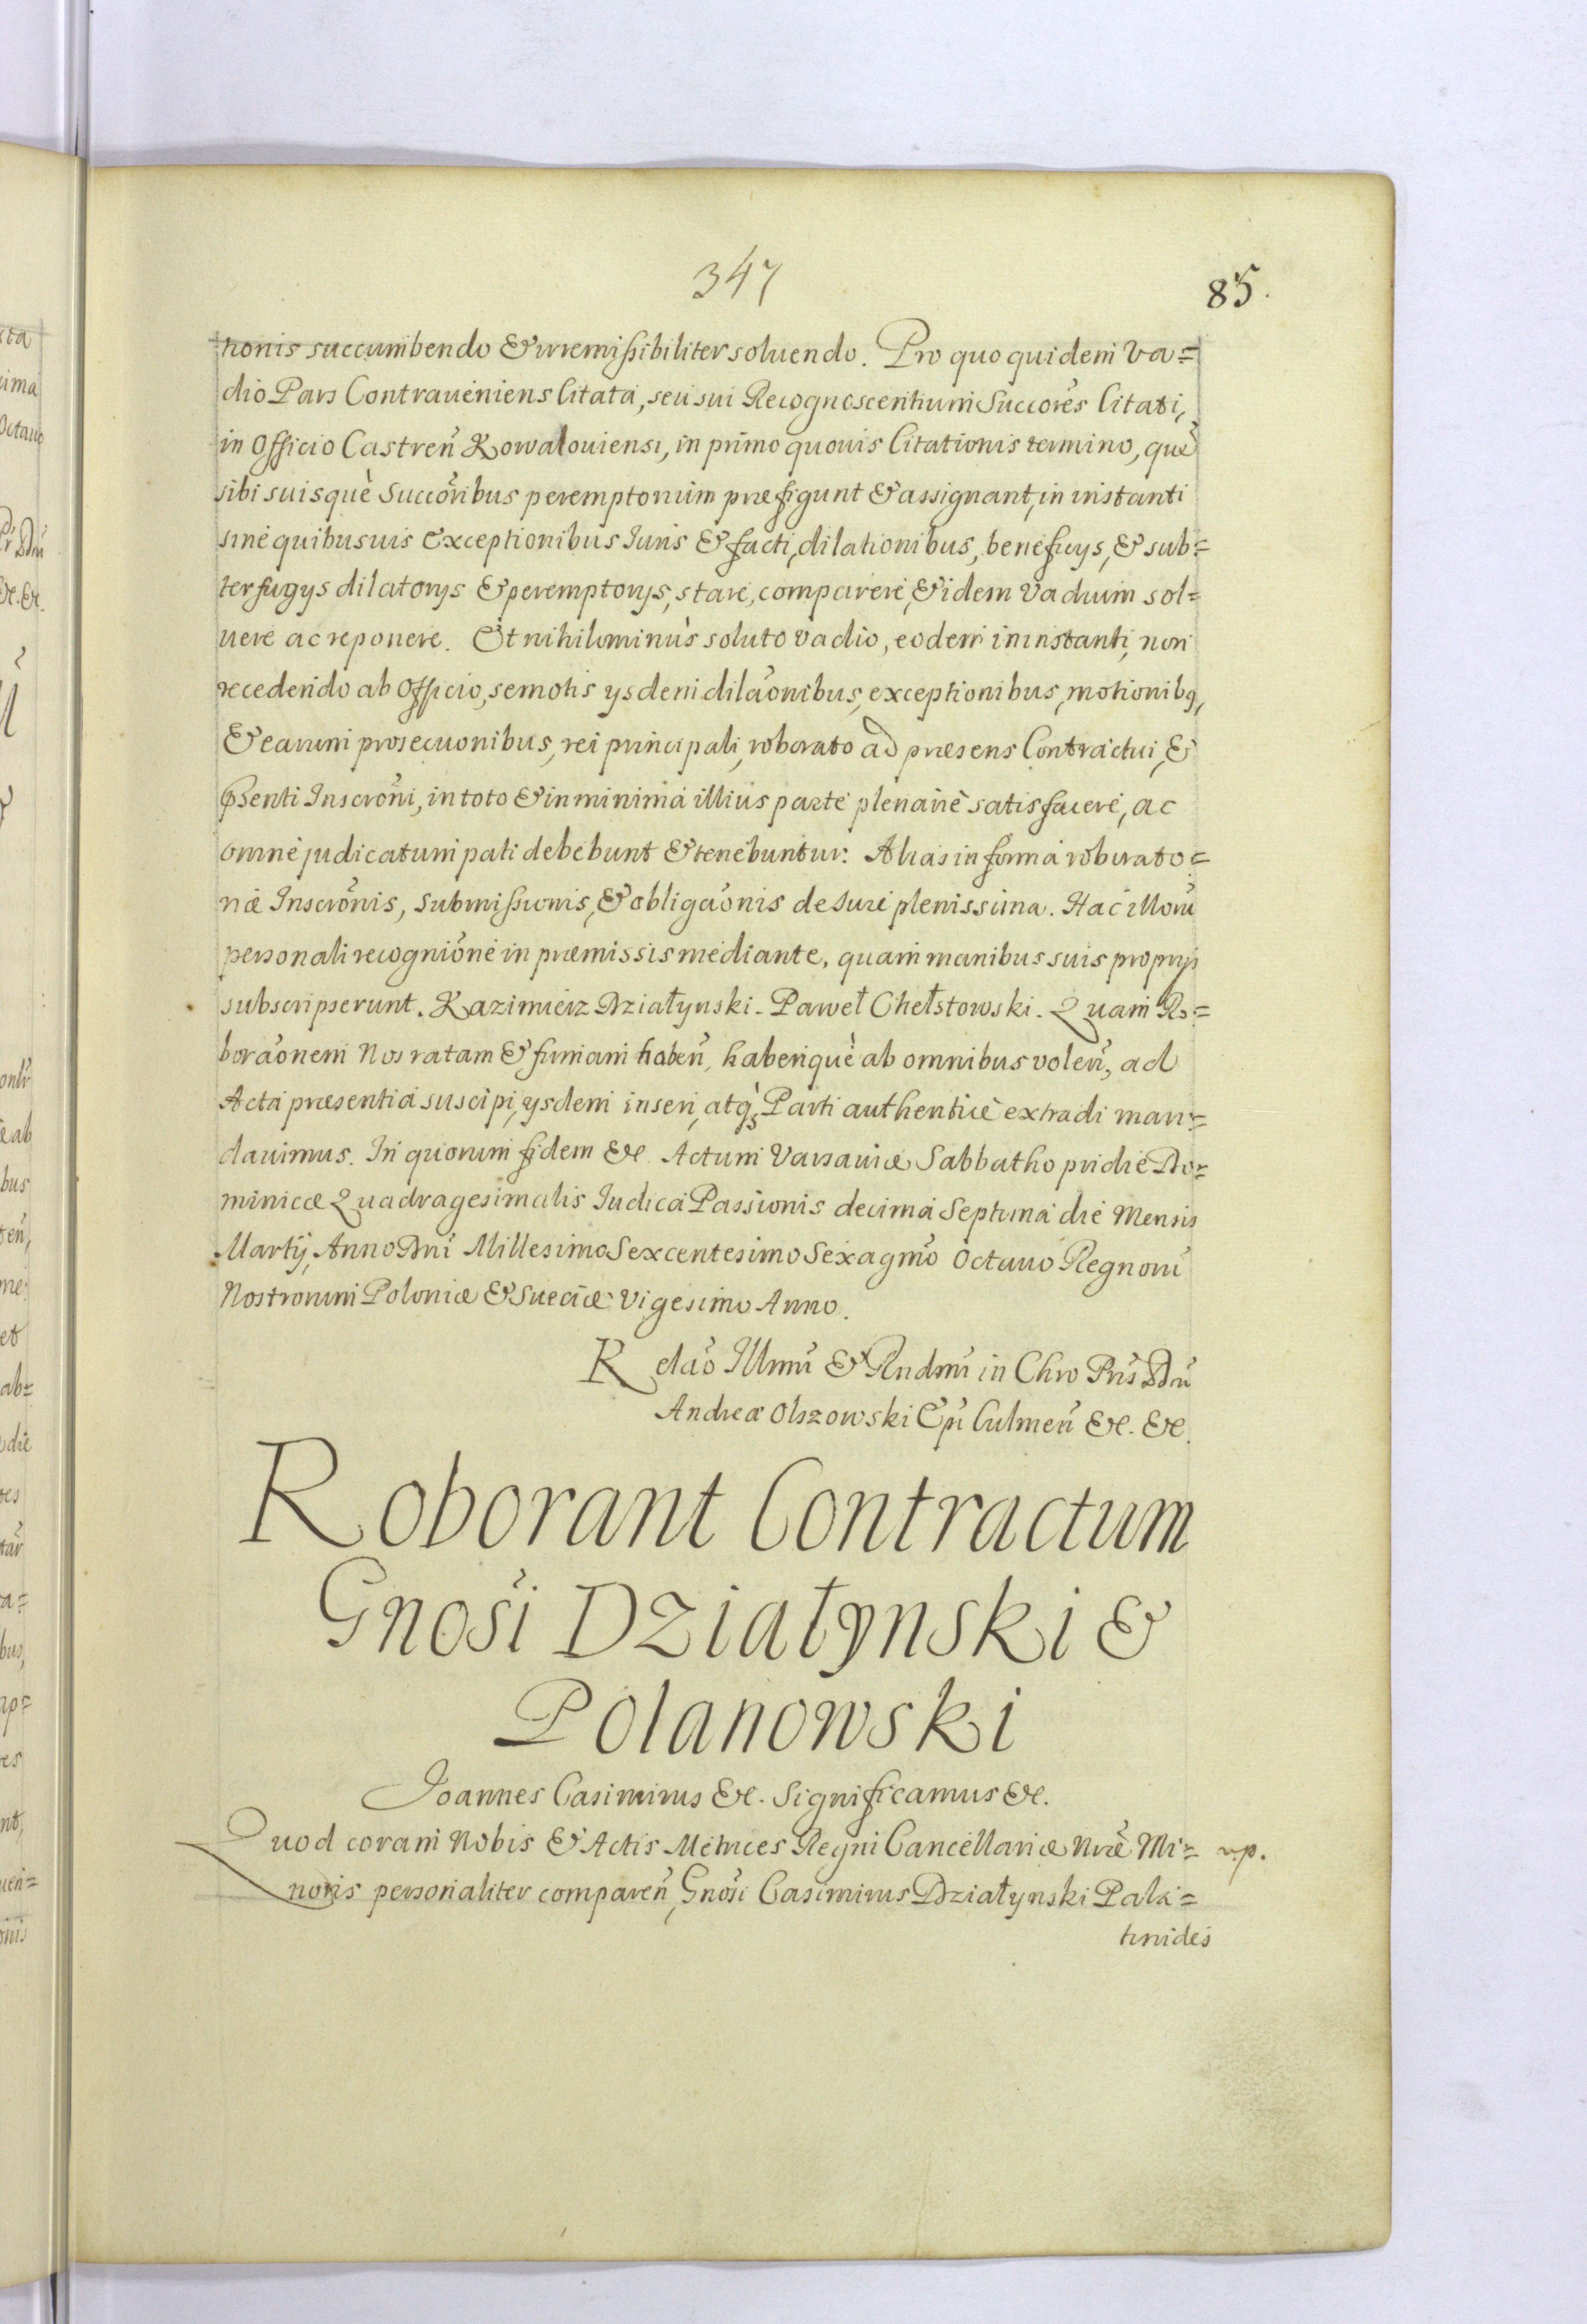 347
85.
tionis succumbendo & irremissibiliter soluendo. Pro quo quidem Va=
dio Pars Contraueniens Citata, seu sui Recognoscentium Succores Citati,
in Officio Castreñ Kowalouiensi, in primo quouis Citationis termino, què
sibi suisquè Succoribus peremptorium præfigunt & assignant, in instanti
sine quibusuis Exceptionibus Iuris & facti, dilationibus, beneficys, & sub=
terfugys dilatorys & peremptorys, stare, comparere, & idem Vadium sol=
uere ac reponere. Et nihilominùs soluto vadio, eodem in instanti, non
recedendo ab Officio, semotis ysdem dilaõnibus, exceptionibus, motionibq,
& earum prosecuonibus, rei principali, roborato ad præsens Contractui, &
pñsenti Inscrõni, in toto & in minima illius parte plenariè satisfacere, ac
omne judicatum pati debebunt & tenebuntur: Alias in forma roborato=
riæ Inscrõnis, submissionis, & obligaõnis de Iure plenissima. Hac illorũ
personali recogniõne in præmissis mediante, quam manibus suis propryis
subscripserunt. Kazimierz Działynski - Paweł Chełstowski. Quam Ro=
boraõnem Nos ratam & firmam habeñ, haberiquè ab omnibus voleñ, ad
Acta præsentia suscipi, ysdem inseri, atq̀з Parti authenticè extradi man=
dauimus. In quorum fidem &c Actum Varsauiæ Sabbatho pridie Do=
minicæ Quadragesimalis Iudica Passionis decima Septima die Mensis
Martij, Anno Dnĩ Millesimo Sexcentesimo Sexagmõ Octauo Regnorũ
Nostrorum Poloniæ & Sueciæ Vigesimo Anno.
Relaõ Illmĩ & Rndmĩ in Chro Pris Dnĩ
Andreæ Olszowski Epĩ Culmeñ &c. &c.
Roborant Contractum
Gnosi Działynski &
Polanowski
Joannes Casimirus &c. Significamus &c.
Quod coram Nobis & Actis Metrices Regni Cancellariæ Nræ Mi= r.p.
noris personaliter compareñ, Gnosi Casimirus Działynski Pala=
tinides